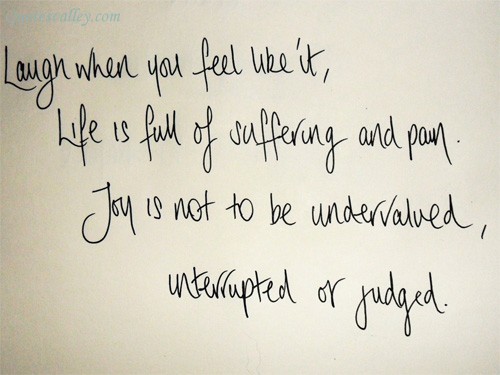 quotesvalley.com
Laugh when you feel like it,
Life is full of suffering and pain.
Joy is not to be undervalued,
interrupted or judged.